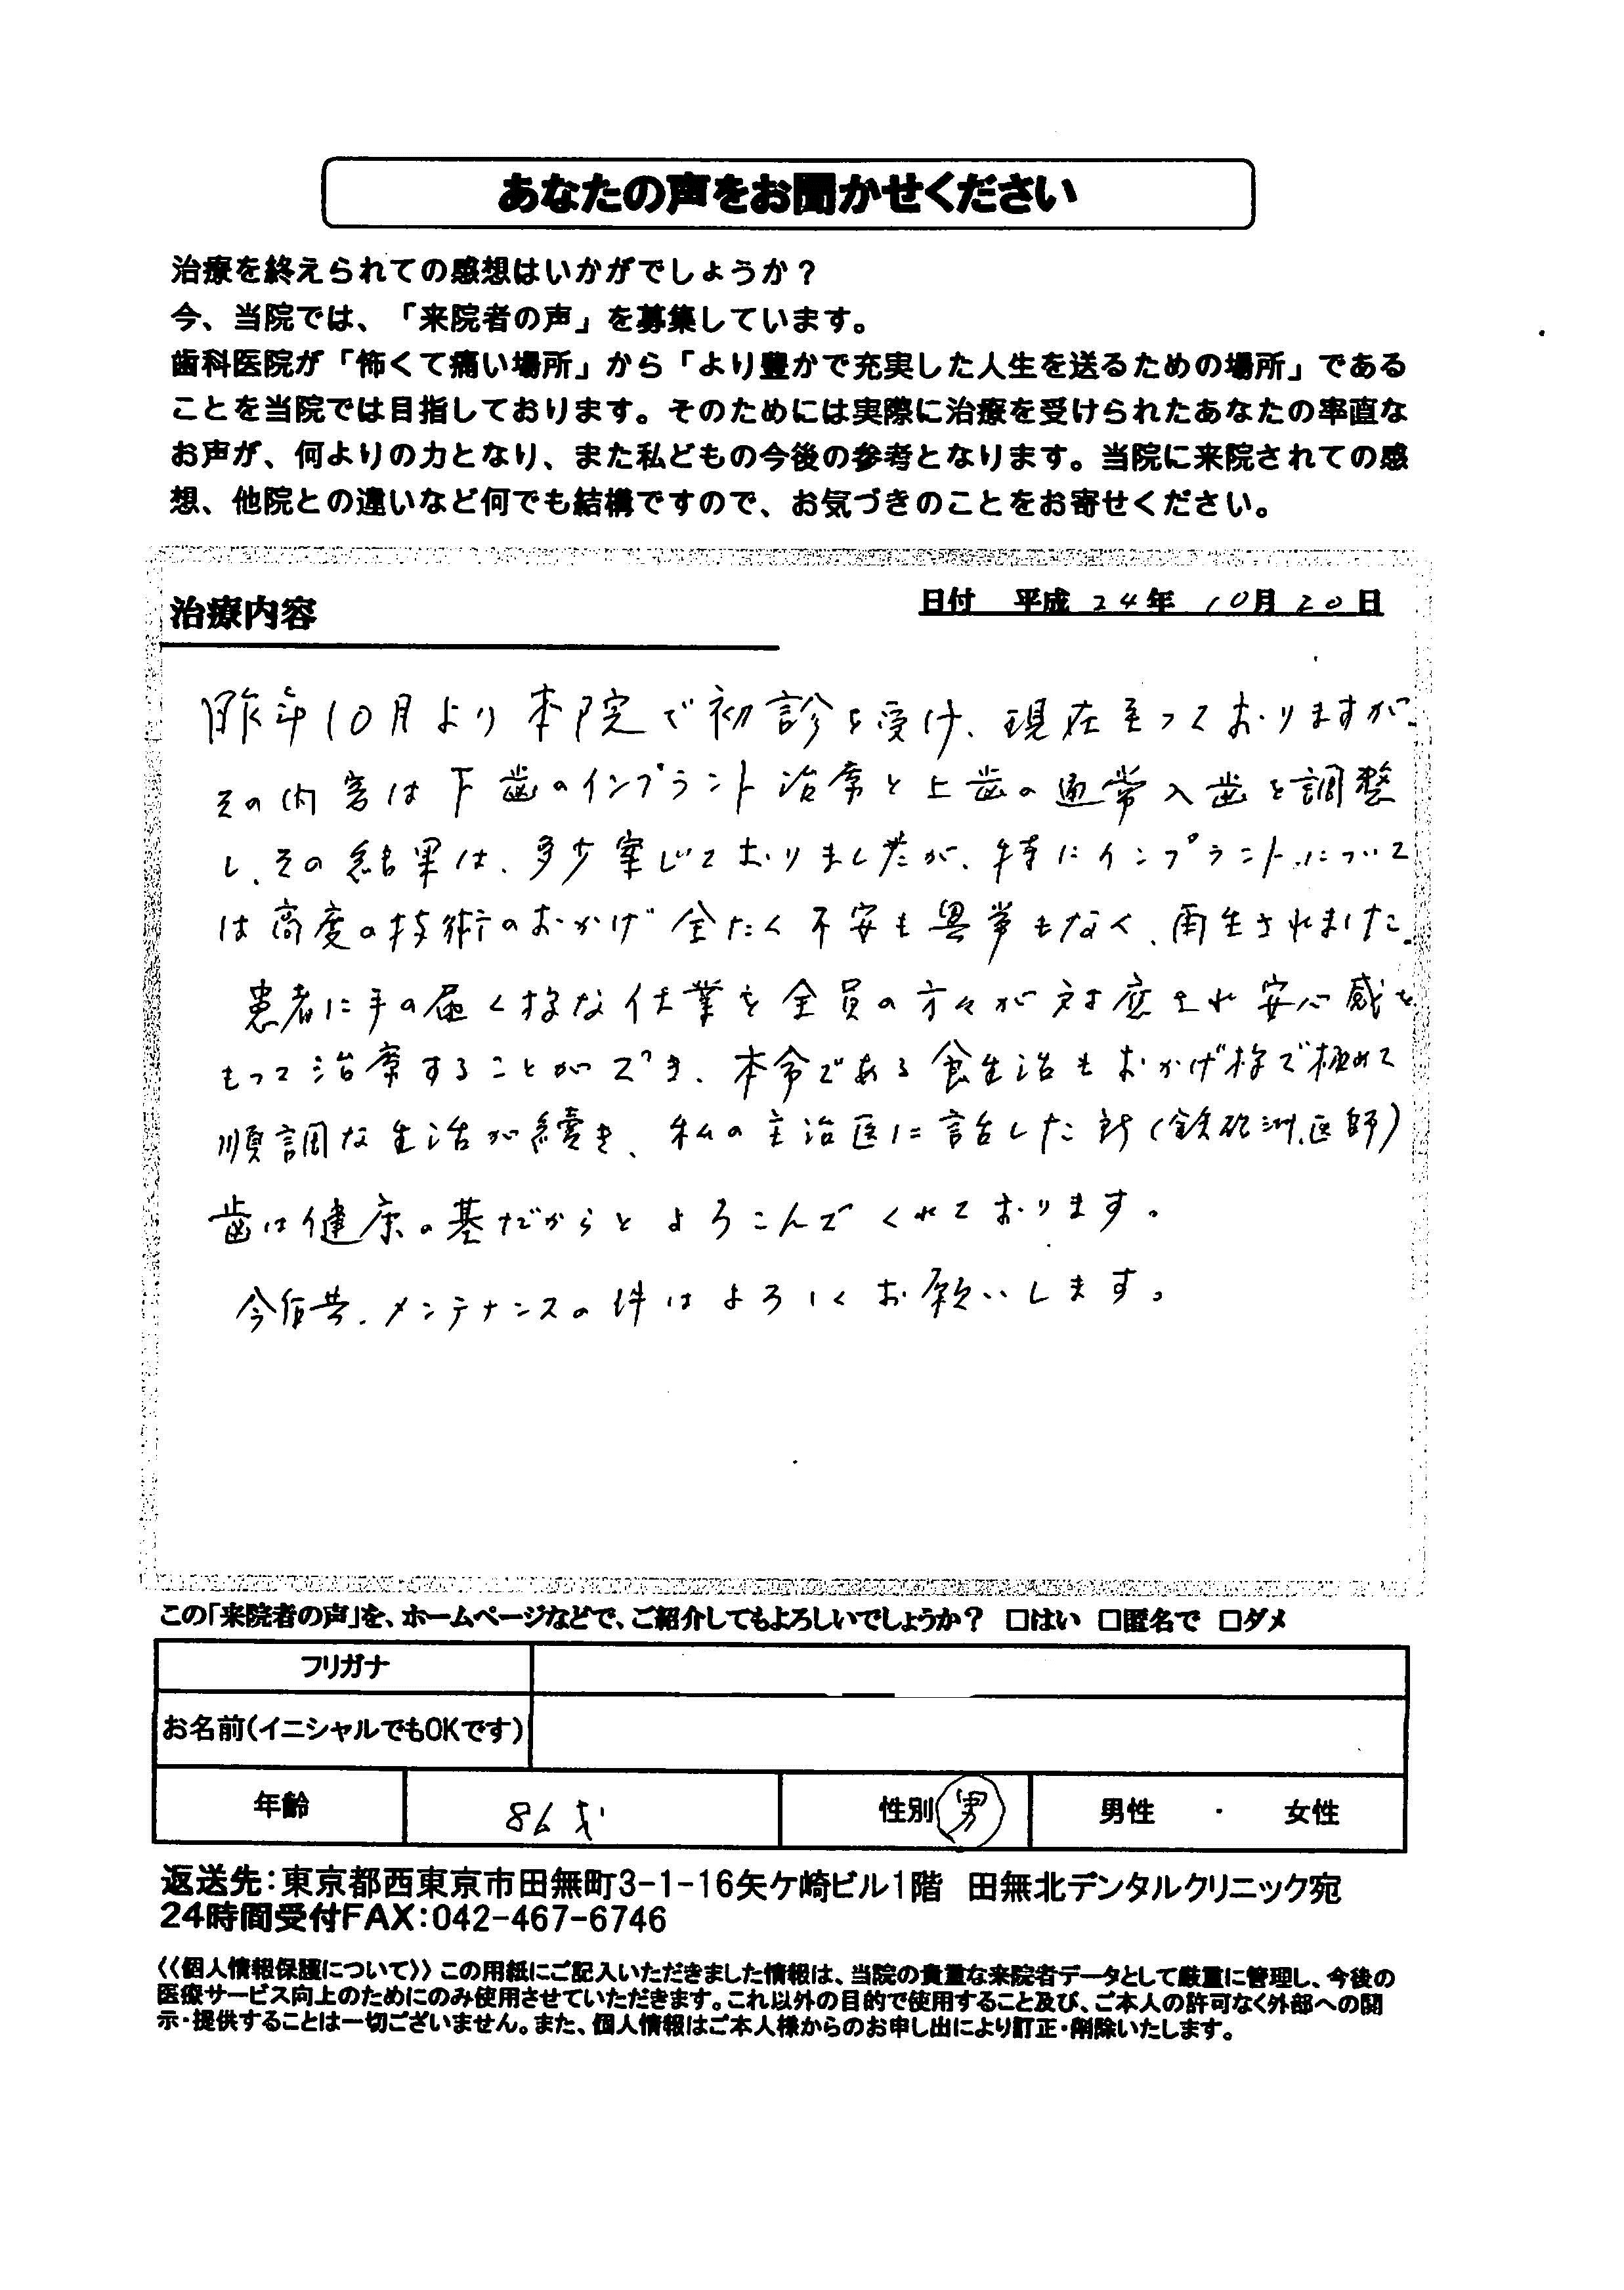 あなたの声をお聞かせください
治療を終えられての感想はいかがでしょうか？
今、当院では、「来院者の声」を募集しています。
歯科医院が「怖くて痛い場所」から「より豊かで充実した人生を送るための場所」である
ことを当院では目指しております。そのためには実際に治療を受けられたあなたの率直な
お声が、何よりの力となり、また私どもの今後の参考となります。当院に来院されての感
想、他院との違いなど何でも結構ですので、お気づきのことをお寄せください。
治療内容
日付 平成 24年 10月 20日
昨年10月より本院で初診を受け、現在至っておりますが、
その内容は下歯のインプラント治療と上歯の通常入歯を調整
し、その結果は、多少案じておりましたが、特にインプラントについて
は高度の技術のおかげ全たく不安も異常もなく、再生されました。
患者に手の届く様な作業を全員の方々が対応され安心感を
もって治療することができ、本命である食生活もおかげ様で極めて
順調な生活が続き、私の主治医に話した所(鉄砲洲医師)
歯は健康の基だからとよろこんでくれております。
今后共、メンテナンスの件はよろしくお願いします。
この「来院者の声」を、ホームページなどで、ご紹介してもよろしいでしょうか？ □はい □匿名で □ダメ
フリガナ
お名前（イニシャルでもOKです）
年齢 86才 性別 男 男性 ・ 女性
返送先：東京都西東京市田無町3-1-16矢ケ崎ビル1階 田無北デンタルクリニック宛
24時間受付FAX：042-467-6746
〈〈個人情報保護について〉〉この用紙にご記入いただきました情報は、当院の貴重な来院者データとして厳重に管理し、今後の
医療サービス向上のためにのみ使用させていただきます。これ以外の目的で使用すること及び、ご本人の許可なく外部への開
示・提供することは一切ございません。また、個人情報はご本人様からのお申し出により訂正・削除いたします。